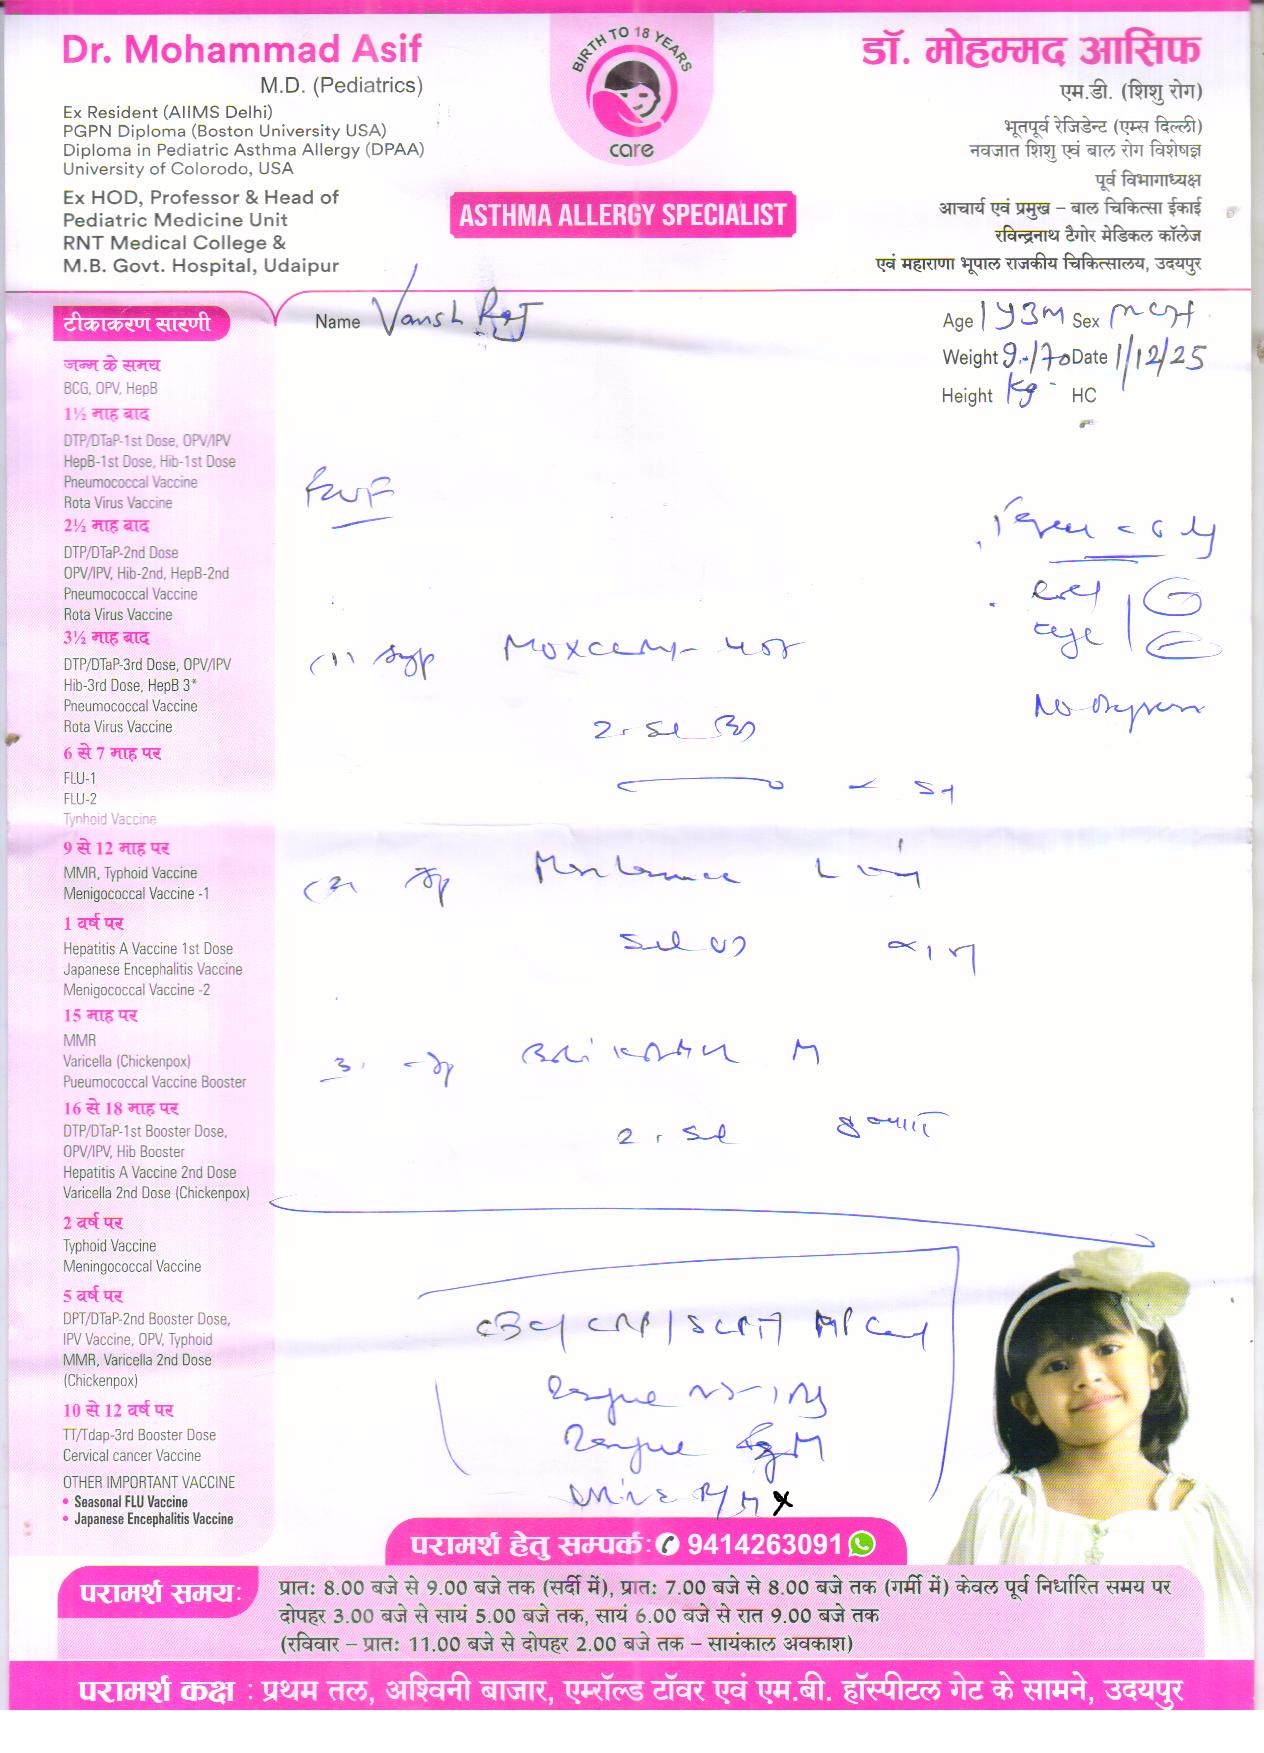 Dr. Mohammad Asif
M.D. (Pediatrics)
Ex Resident (AIIMS Delhi)
PGPN Diploma (Boston University USA)
Diploma in Pediatric Asthma Allergy (DPAA)
University of Colorodo, USA
Ex HOD, Professor & Head of
Pediatric Medicine Unit
RNT Medical College &
M.B. Govt. Hospital, Udaipur
BIRTH TO 18 YEARS
care
ASTHMA ALLERGY SPECIALIST
डॉ. मोहम्मद आसिफ
एम.डी. (शिशु रोग)
भूतपूर्व रेजिडेन्ट (एम्स दिल्ली)
नवजात शिशु एवं बाल रोग विशेषज्ञ
पूर्व विभागाध्यक्ष
आचार्य एवं प्रमुख – बाल चिकित्सा ईकाई
रविन्द्रनाथ टैगोर मेडिकल कॉलेज
एवं महाराणा भूपाल राजकीय चिकित्सालय, उदयपुर
Name Vansh Raj
Age 1y3m Sex mch
Weight 9.170 Date 1/12/25
Height kg HC
टीकाकरण सारणी
जन्म के समय
BCG, OPV, HepB
1½ माह बाद
DTP/DTaP-1st Dose, OPV/IPV
HepB-1st Dose, Hib-1st Dose
Pneumococcal Vaccine
Rota Virus Vaccine
2½ माह बाद
DTP/DTaP-2nd Dose
OPV/IPV, Hib-2nd, HepB-2nd
Pneumococcal Vaccine
Rota Virus Vaccine
3½ माह बाद
DTP/DTaP-3rd Dose, OPV/IPV
Hib-3rd Dose, HepB 3*
Pneumococcal Vaccine
Rota Virus Vaccine
6 से 7 माह पर
FLU-1
FLU-2
Typhoid Vaccine
9 से 12 माह पर
MMR, Typhoid Vaccine
Menigococcal Vaccine -1
1 वर्ष पर
Hepatitis A Vaccine 1st Dose
Japanese Encephalitis Vaccine
Menigococcal Vaccine -2
15 माह पर
MMR
Varicella (Chickenpox)
Pueumococcal Vaccine Booster
16 से 18 माह पर
DTP/DTaP-1st Booster Dose,
OPV/IPV, Hib Booster
Hepatitis A Vaccine 2nd Dose
Varicella 2nd Dose (Chickenpox)
2 वर्ष पर
Typhoid Vaccine
Meningococcal Vaccine
5 वर्ष पर
DPT/DTaP-2nd Booster Dose,
IPV Vaccine, OPV, Typhoid
MMR, Varicella 2nd Dose
(Chickenpox)
10 से 12 वर्ष पर
TT/Tdap-3rd Booster Dose
Cervical cancer Vaccine
OTHER IMPORTANT VACCINE
• Seasonal FLU Vaccine
• Japanese Encephalitis Vaccine
(1) Syp
CBC/ CRP/ SGPT MP Card
Dengue NS-1 Ag
Dengue IgM
Urine R/M
परामर्श हेतु सम्पर्क: 9414263091
परामर्श समय:
प्रातः 8.00 बजे से 9.00 बजे तक (सर्दी में), प्रातः 7.00 बजे से 8.00 बजे तक (गर्मी में) केवल पूर्व निर्धारित समय पर
दोपहर 3.00 बजे से सायं 5.00 बजे तक, सायं 6.00 बजे से रात 9.00 बजे तक
(रविवार – प्रातः 11.00 बजे से दोपहर 2.00 बजे तक – सायंकाल अवकाश)
परामर्श कक्ष : प्रथम तल, अश्विनी बाजार, एम्रॉल्ड टॉवर एवं एम.बी. हॉस्पीटल गेट के सामने, उदयपुर